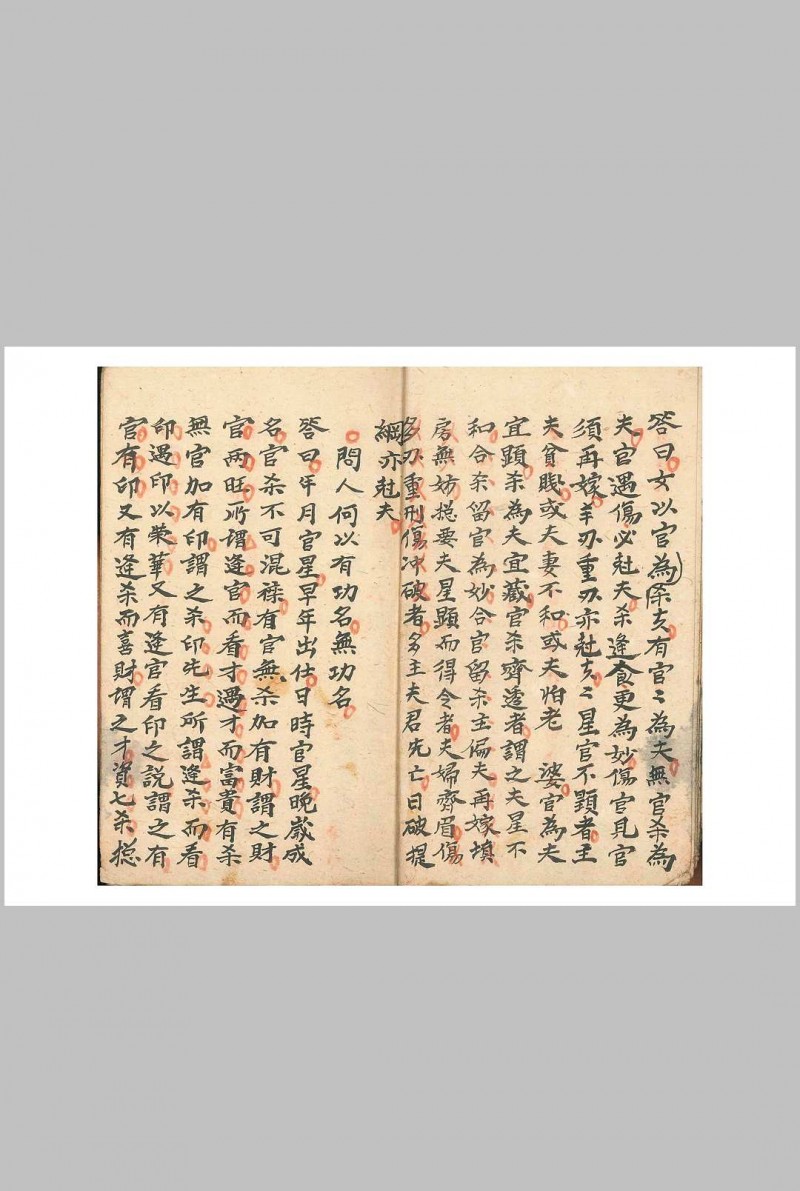 答曰女以官為夫有官〻為夫無官杀為
夫官遇傷必尅夫杀逢食更為妙傷官見官
須再嫁羊刃重刃亦尅夫〻星官不顕者主
夫貧賤或夫妻不和或夫怕老婆官為夫
宜顕杀為夫宜藏官杀齊透者謂之夫星不
和合杀留官為妙合官留杀主偏夫再嫁填
房無妨捴要夫星顕而得令者夫婦齊眉傷
多刃重刑傷冲破者多主夫君先亡日破提
綱亦尅夫
問人何以有功名無功名
答曰年月官星早年出仕日時官星晚歲成
名官杀不可混襍有官無杀加有財謂之財
官两旺所謂逢官而看才遇才而富貴有杀
無官加有印謂之杀印先生所謂逢杀而看
印遇印以荣華又有逢官看印之説謂之有
官有印又有逢杀而喜財謂之才資七杀捴